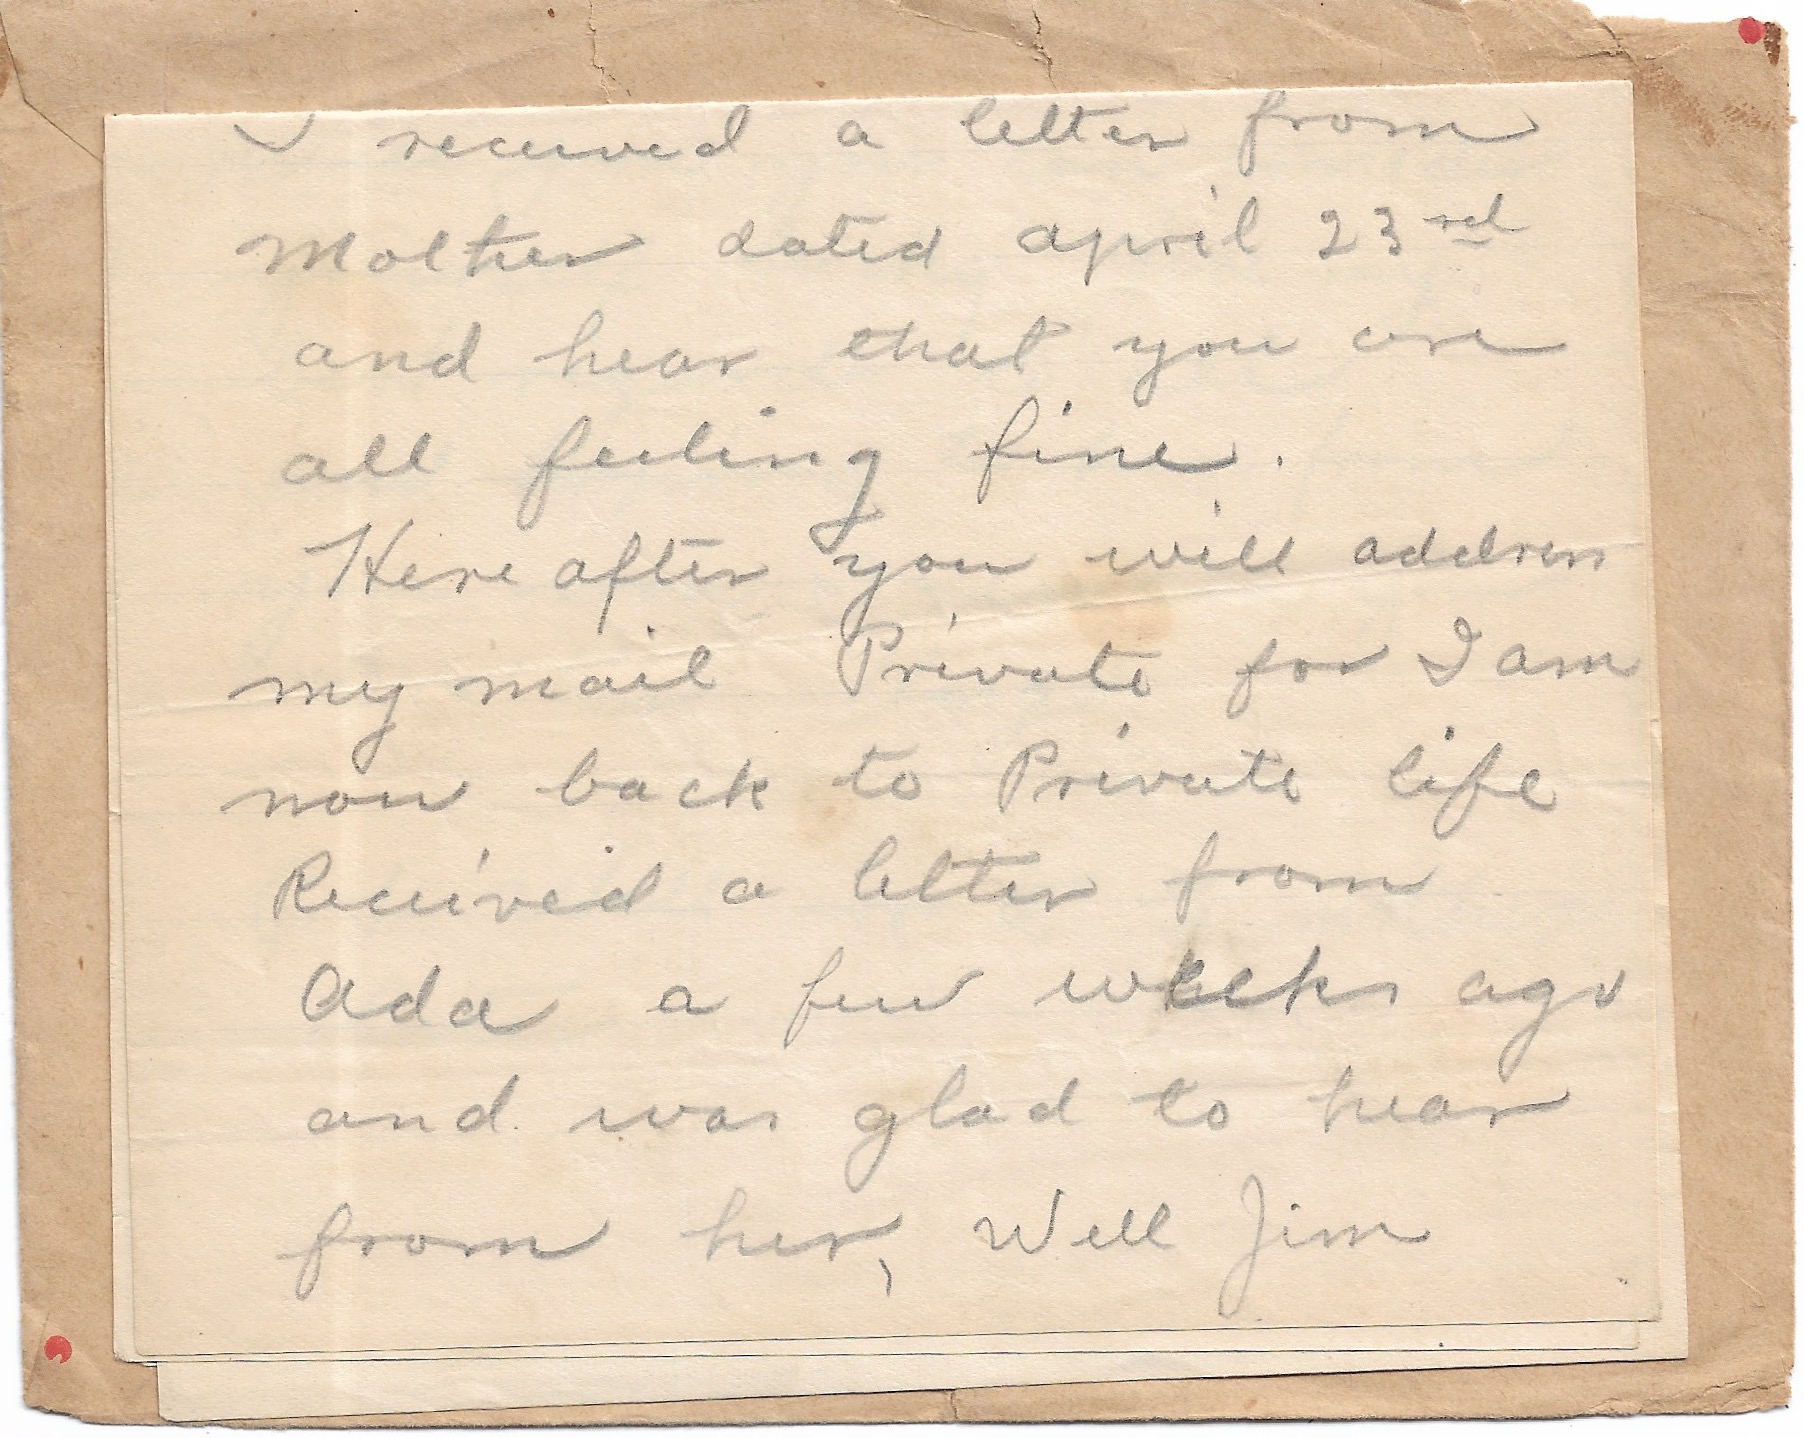 I received a letter from
Mother dated april 23rd
and hear that you are
all feeling fine.
Here after you will address
my mail Private for I am
now back to Private life
Received a letter from
Ada a few weeks ago
and was glad to hear
from her, Well Jim